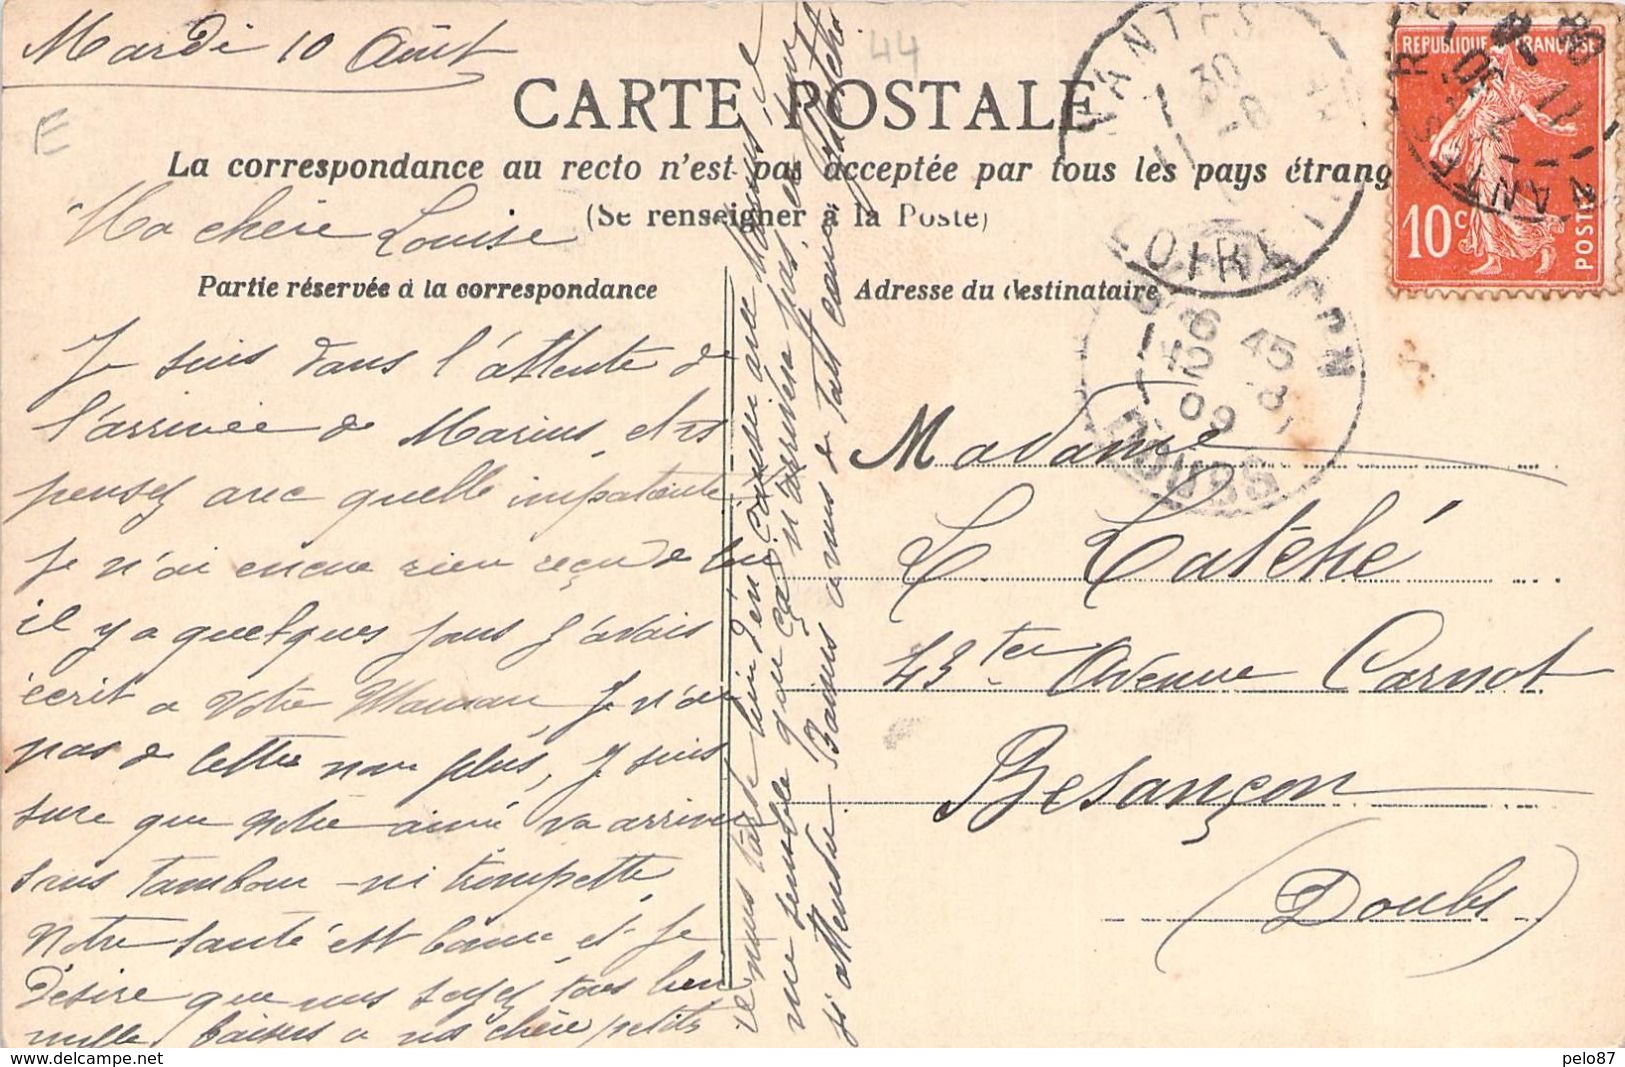 Mardi 10 Août
44
E
CARTE POSTALE
La correspondance au recto n'est pas acceptée par tous les pays étrang
(Se renseigner à la Poste)
Partie réservée à la correspondance
Adresse du destinataire
REPUBLIQUE FRANÇAISE
10c POSTES
NANTES
30
LOIRE
6 45
12 8
09
DOUBS
Ma chère Louise
Je suis dans l'attente de
l'arrivée de Marius, et
pensez avec quelle impatiente
Je n'ai encore rien reçu de lui
il y a quelques jours j'avais
écrit a votre Maman Je n'ai
pas de lettre non plus, Je suis
sure que notre aimé va arriver
sans tambour ni trompette
Notre santé est bonne et je
désire que vous soyez tous bien
mille baisers a vos chère petits
Il nous tarde bien d'en causer avec Marius il
me semble que ça n'arrivera pas, en
d'attendre Baisers a vous de tout coeur
Madame
L Latché
43 ter Avenue Carnot
Besançon
(Doubs)
pelo87